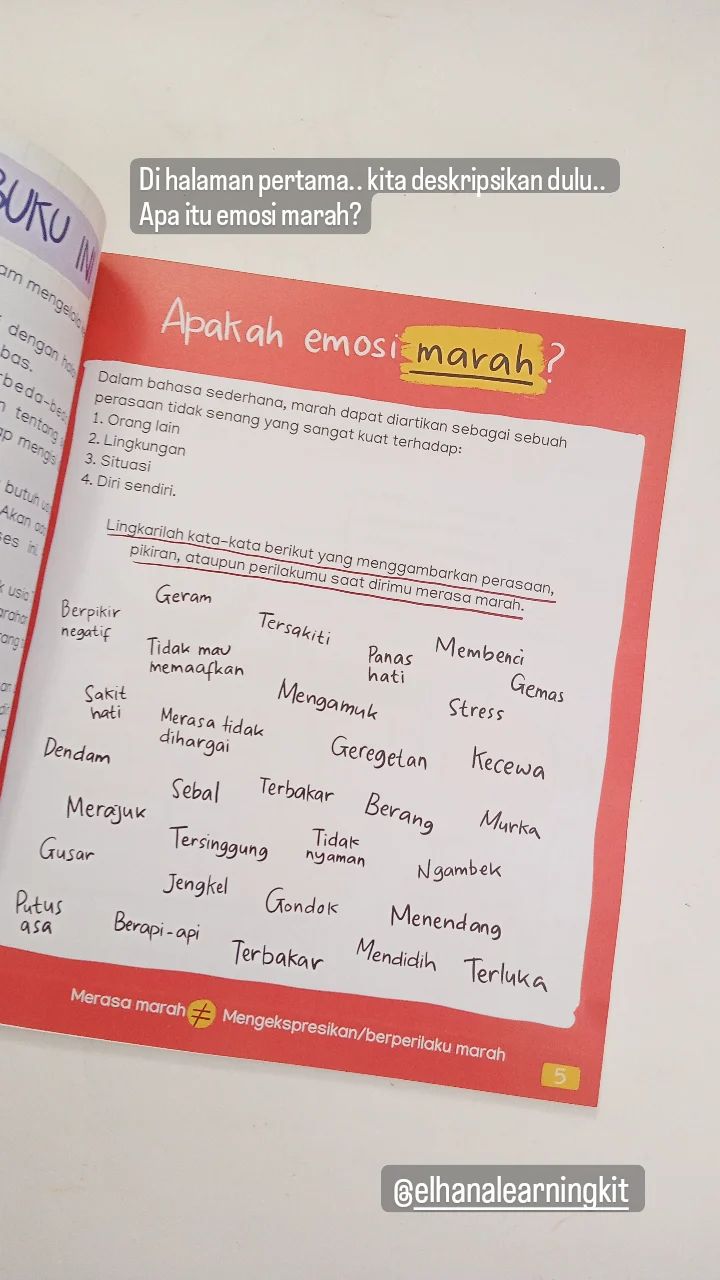 Di halaman pertama.. kita deskripsikan dulu..
Apa itu emosi marah?
BUKU INI
dengan
bas.
tentang
butuh
Akan
Apakah emosi marah?
Dalam bahasa sederhana, marah dapat diartikan sebagai sebuah
perasaan tidak senang yang sangat kuat terhadap:
1. Orang lain
2. Lingkungan
3. Situasi
4. Diri sendiri.
Lingkarilah kata-kata berikut yang menggambarkan perasaan,
pikiran, ataupun perilakumu saat dirimu merasa marah.
Geram
Berpikir
negatif
Tersakiti
Tidak mau
memaafkan
Panas
hati
Membenci
Gemas
Sakit
hati
Mengamuk
Stress
Merasa tidak
dihargai
Geregetan
Kecewa
Dendam
Sebal
Terbakar
Berang
Murka
Merajuk
Tersinggung
Tidak
nyaman
Ngambek
Gusar
Jengkel
Gondok
Menendang
Putus
asa
Berapi-api
Terbakar
Mendidih
Terluka
Merasa marah ≠ Mengekspresikan/berperilaku marah
5
@elhanalearningkit